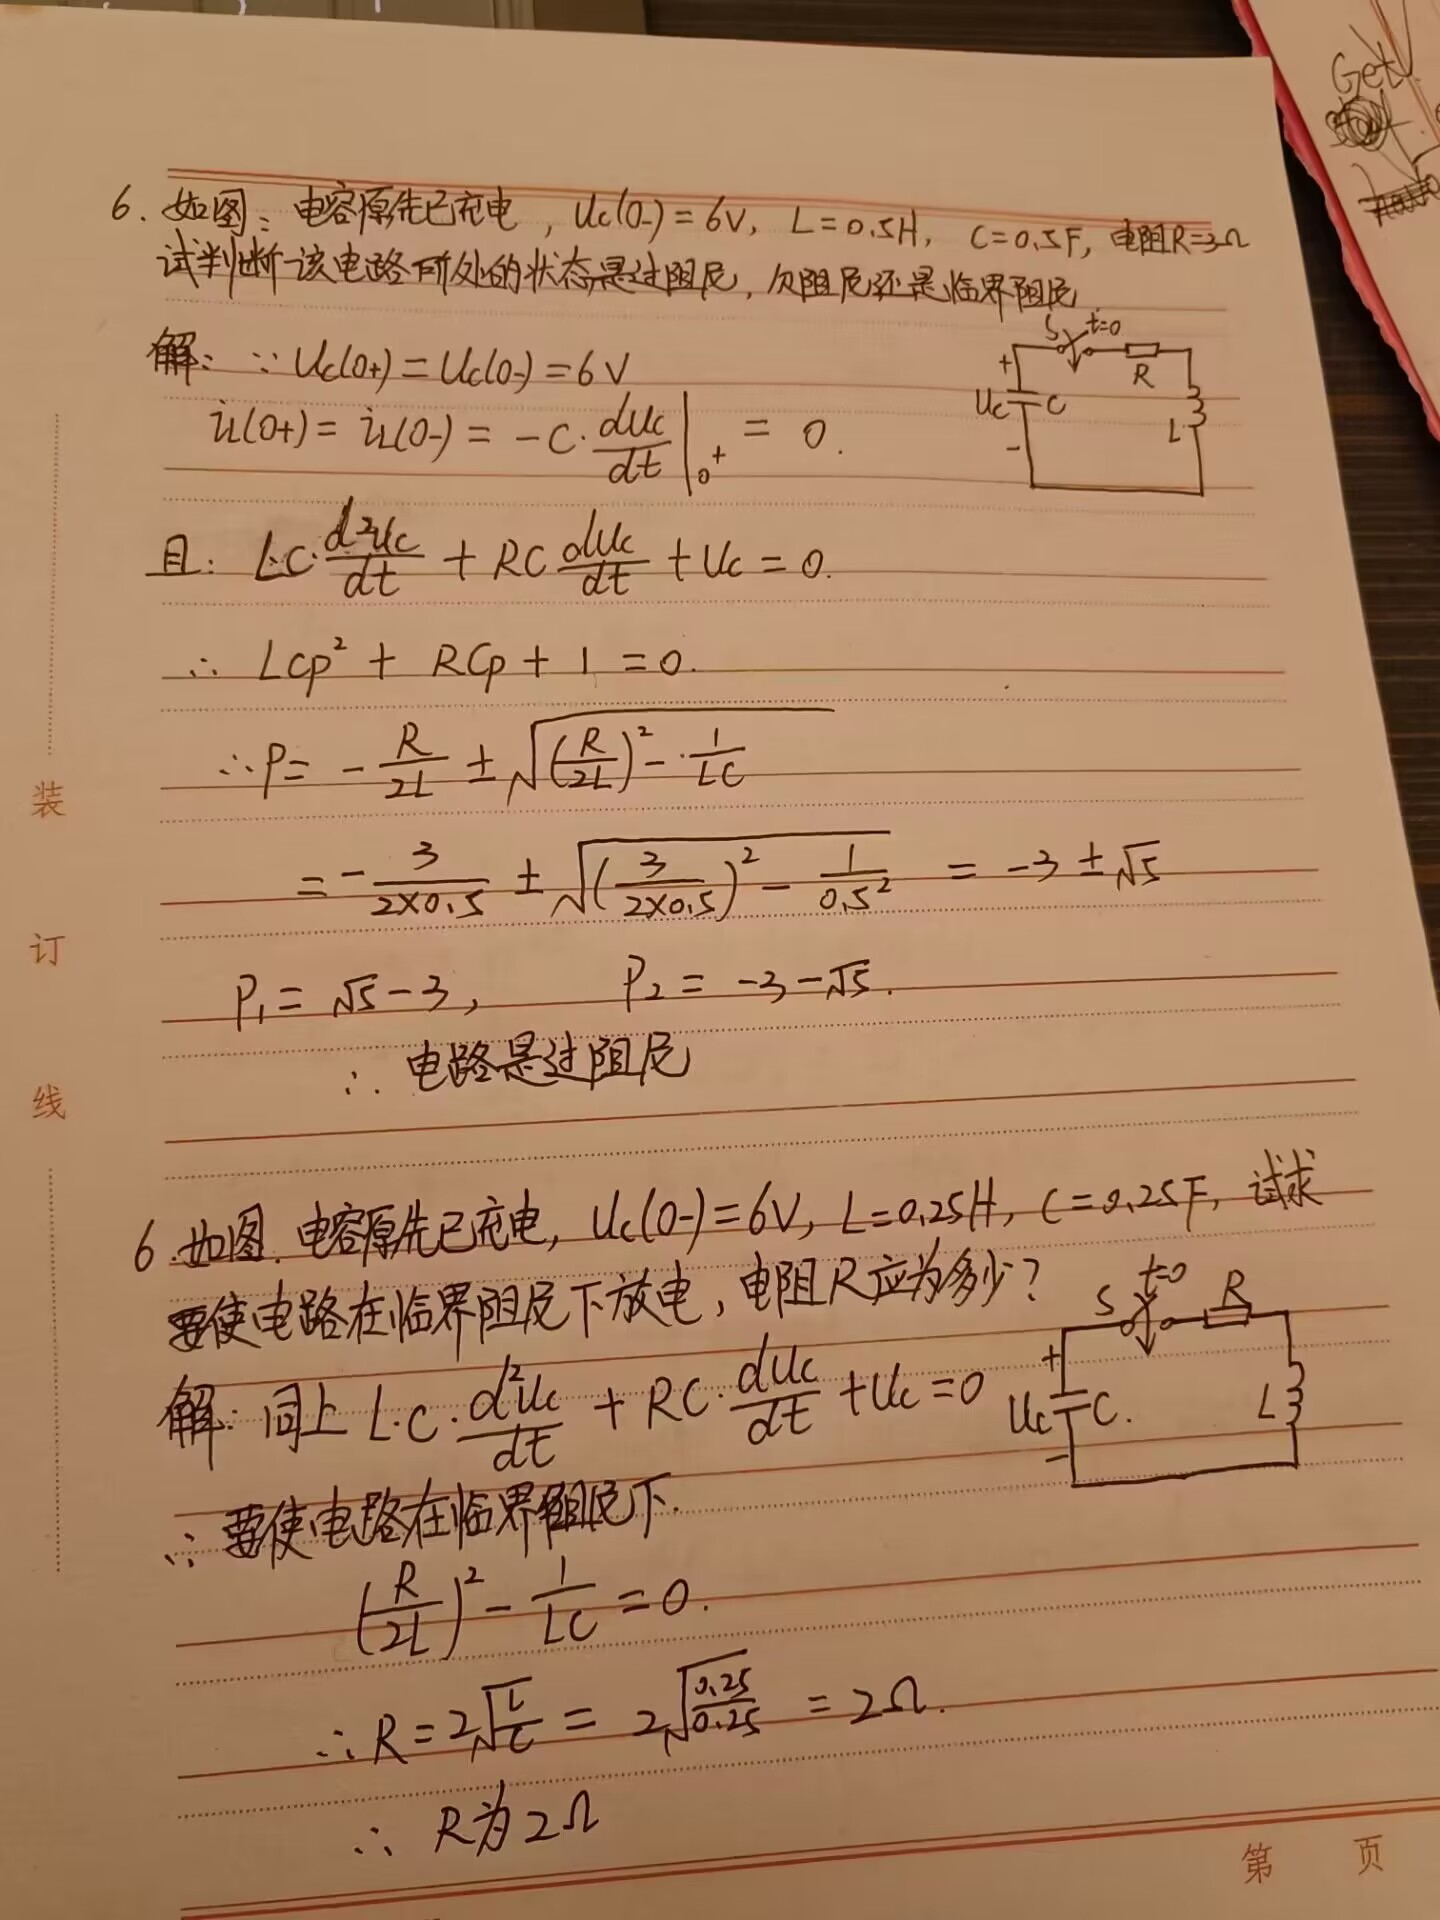 6. 如图: 电容原先已充电, Uc(0-)=6V, L=0.5H, C=0.5F, 电阻R=3Ω
试判断该电路所处的状态是过阻尼, 欠阻尼还是临界阻尼
解: ∵ Uc(0+)=Uc(0-)=6V
S t=0
R
+
Uc C
-
L
iL(0+)=iL(0-)=-C·dUc/dt|0+ =0.
且: L·C·d²Uc/dt + RC dUc/dt + Uc = 0.
∴ LCp² + RCp + 1 = 0.
∴ P = -R/2L ± √((R/2L)² - ·1/LC)
= -3/2×0.5 ± √((3/2×0.5)² - 1/0.5²) = -3±√5
P₁ = √5-3, P₂ = -3-√5.
∴ 电路是过阻尼
6.如图.电容原先已充电, Uc(0-)=6V, L=0.25H, C=0.25F, 试求
要使电路在临界阻尼下放电, 电阻R应为多少?
S t=0 R
+
Uc C.
-
L
解: 同上 L·C·d²Uc/dt + RC·dUc/dt + Uc = 0
∴ 要使电路在临界阻尼下.
(R/2L)² - 1/LC = 0.
∴ R = 2√(L/C) = 2√(0.25/0.25) = 2Ω.
∴ R为2Ω
装
订
线
第 页
Get